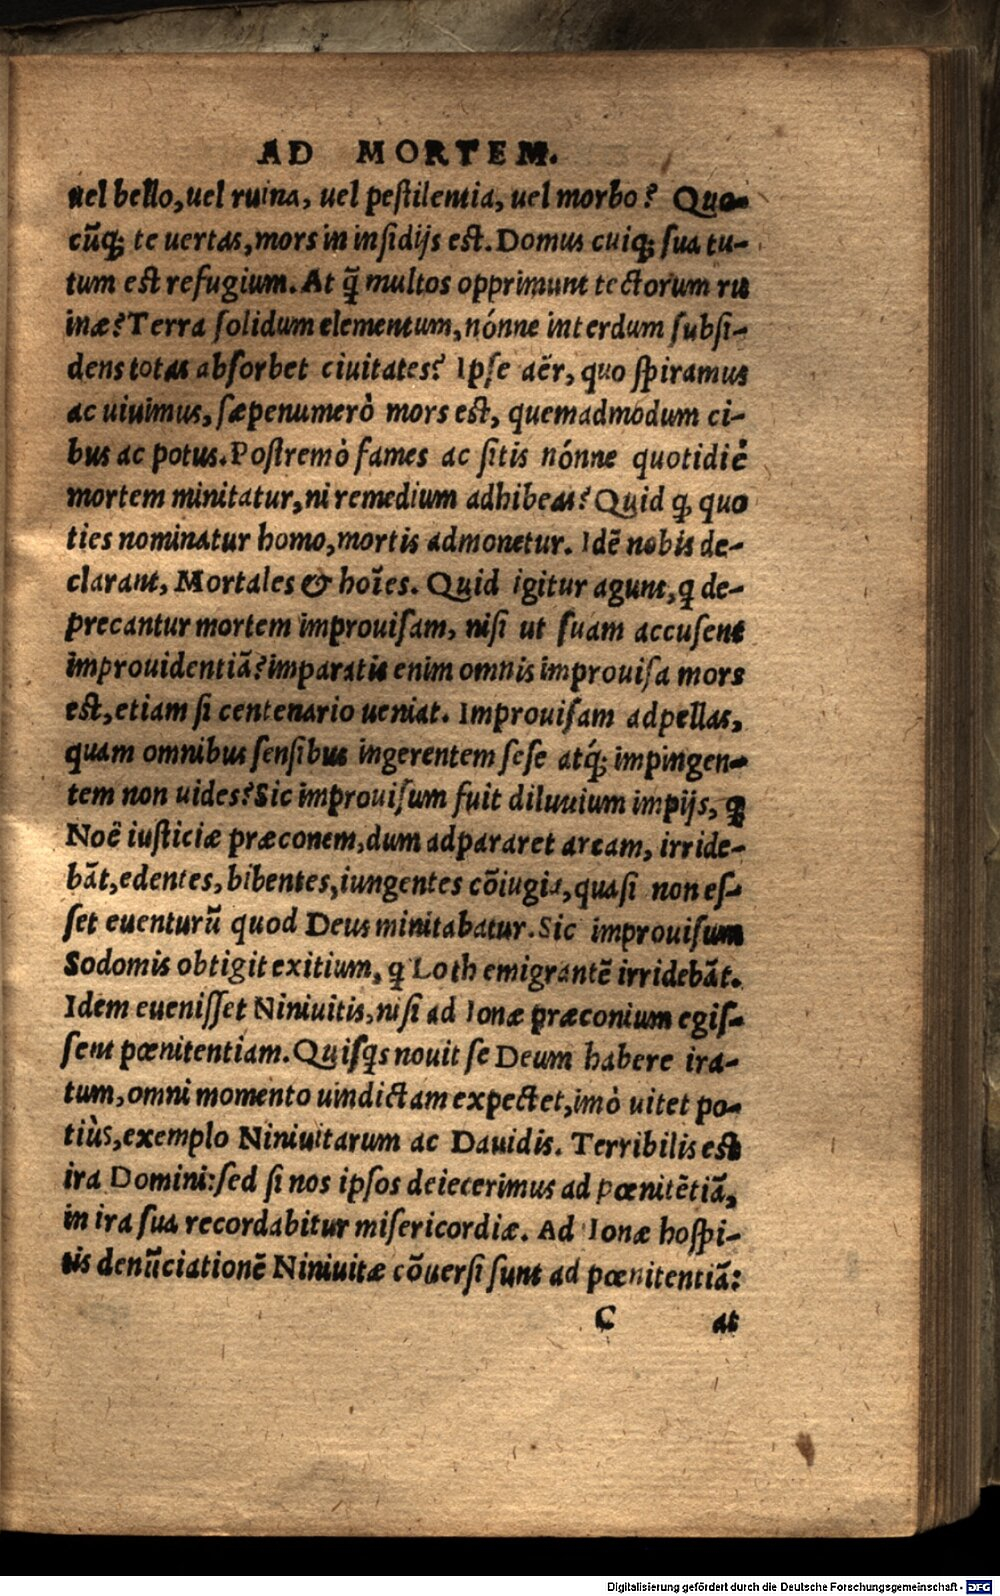 AD MORTEM.
uel bello, uel ruina, uel pestilentia, uel morbo? Quo-
cũq; te uertas, mors in insidijs est. Domus cuiq; sua tu-
tum est refugium. At q̃ multos opprimunt tectorum ru
inæ? Terra solidum elementum, nónne interdum subsi-
dens totas absorbet ciuitates? Ipse aër, quo spiramus
ac uiuimus, sæpenumerò mors est, quemadmodum ci-
bus ac potus. Postremò fames ac sitis nónne quotidiè
mortem minitatur, ni remedium adhibeas? Quid ꝙ quo
ties nominatur homo, mortis admonetur. Idẽ nobis de-
clarant, Mortales & hoĩes. Quid igitur agunt, q̃ de-
precantur mortem improuisam, nisi ut suam accusent
improuidentiã? imparatis enim omnis improuisa mors
est, etiam si centenario ueniat. Improuisam adpellas,
quam omnibus sensibus ingerentem sese atq́; impingen-
tem non uides? Sic improuisum fuit diluuium impijs, q̃
Noë iusticiæ præconem, dum adpararet arcam, irride-
bãt, edentes, bibentes, iungentes cõiugia, quasi non es-
set euenturũ quod Deus minitabatur. Sic improuisum
Sodomis obtigit exitium, q̃ Loth emigrantẽ irridebãt.
Idem euenisset Niniuitis, nisi ad Ionæ præconium egis-
sent pœnitentiam. Quisq̃s nouit se Deum habere ira-
tum, omni momento uindictam expectet, imò uitet po-
tiùs, exemplo Niniuitarum ac Dauidis. Terribilis est
ira Domini: sed si nos ipsos deiecerimus ad pœnitẽtiã,
in ira sua recordabitur misericordiæ. Ad Ionæ hospi-
tis denũciationẽ Niniuitæ cõuersi sunt ad pœnitentiã:
C at
Digitalisierung gefördert durch die Deutsche Forschungsgemeinschaft - DFG